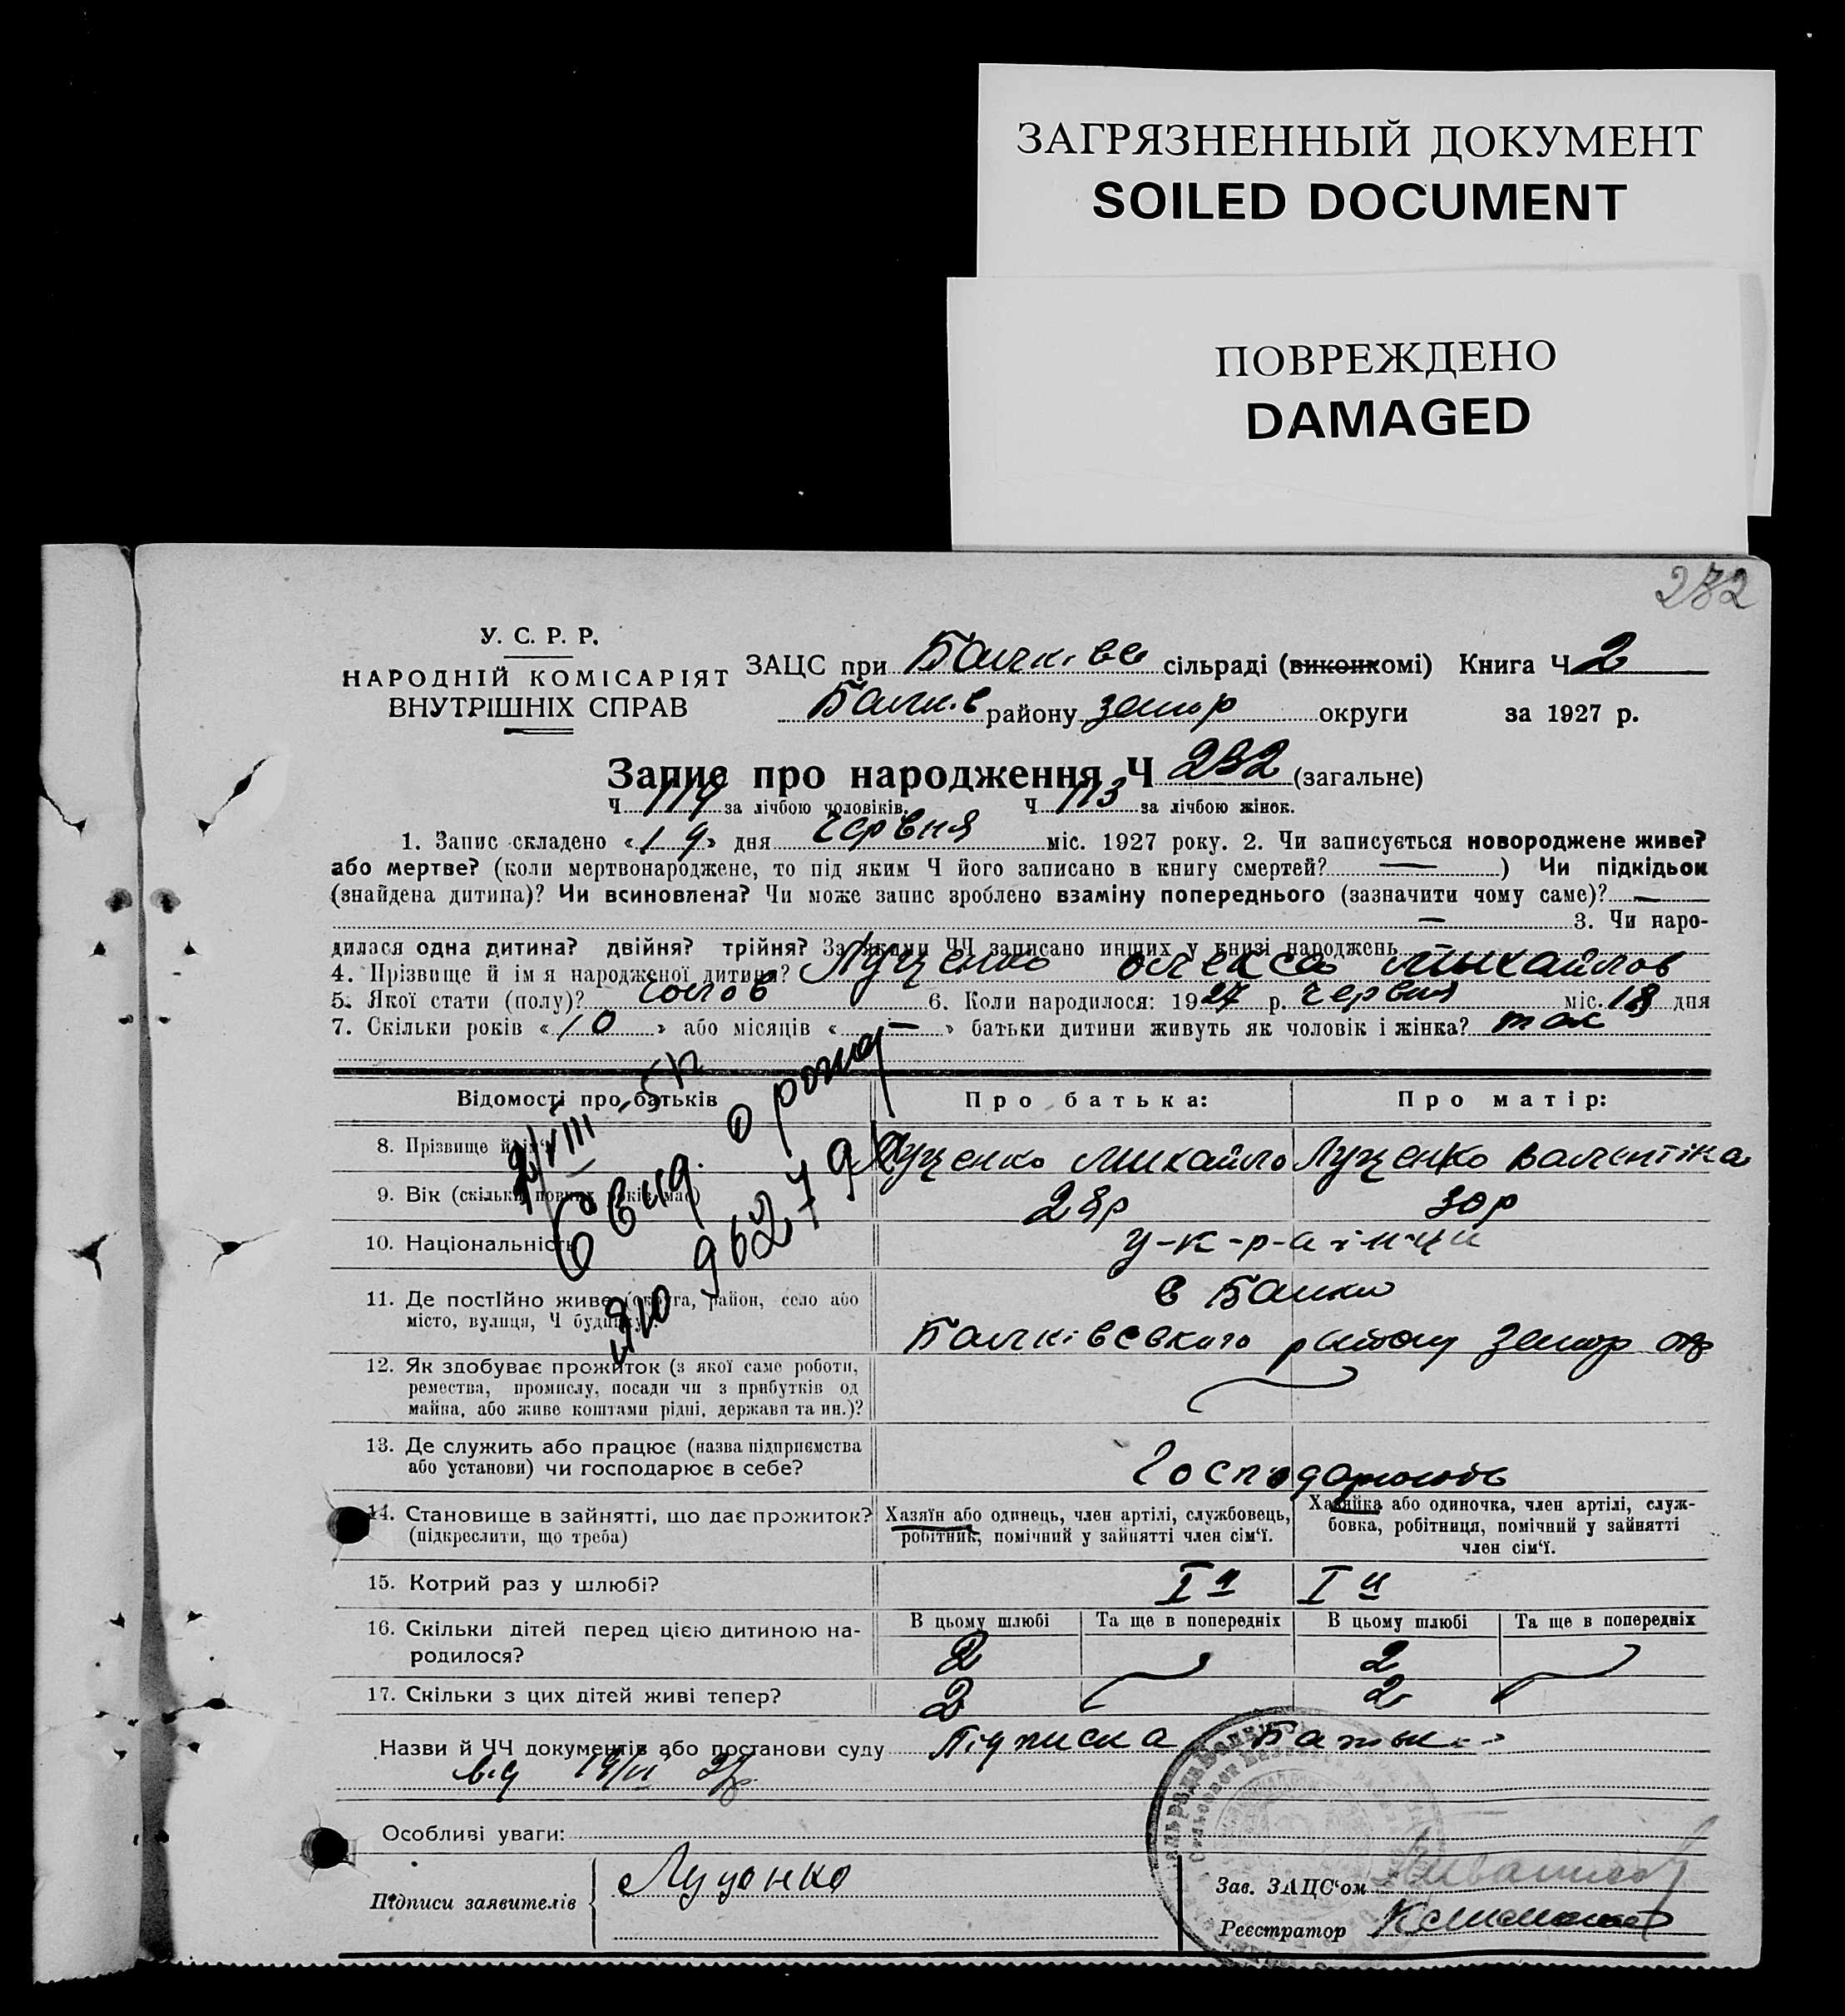 ЗАГРЯЗНЕННЫЙ ДОКУМЕНТ
SOILED DOCUMENT
ПОВРЕЖДЕНО
DAMAGED
232
У. С. Р. Р.
НАРОДНІЙ КОМІСАРІЯТ
ВНУТРІШНІХ СПРАВ
ЗАЦС при Балківс сільраді (виконкомі) Книга Ч 2
Балк.в району запор округи за 1927 р.
Запис про народження Ч 232 (загальне)
Ч 119 за лічбою чоловіків. Ч 113 за лічбою жінок.
1. Запис складено «19» дня червня міс. 1927 року. 2. Чи записується новороджене живе?
або мертве? (коли мертвонароджене, то під яким Ч його записано в книгу смертей? — ) Чи підкідьок
(знайдена дитина)? Чи всиновлена? Чи може запис зроблено взаміну попереднього (зазначити чому саме)? —
— 3. Чи наро-
дилася одна дитина? двійня? трійня? За якими ЧЧ записано инших у книзі народжень —
4. Прізвище й ім'я народженої дитини? Луценко Олекса Михайлов
5. Якої стати (полу)? чолов 6. Коли народилося: 1927 р. червня міс. 18 дня
7. Скільки років «10» або місяців « — » батьки дитини живуть як чоловік і жінка? так
Відомості про батьків Про батька: Про матір:
8. Прізвище й ім'я Луценко Михайло Луценко Валентіна
9. Вік (скільки повних років має) 28р 30р
10. Національність у-к-р-аінци
11. Де постійно живе (округа, район, село або
місто, вулиця, Ч будинку).
в Балки
Балківського району запор окр
12. Як здобуває прожиток (з якої саме роботи,
ремества, промислу, посади чи з прибутків од
майна, або живе коштами рідні, держави та ин.)?
13. Де служить або працює (назва підприємства
або установи) чи господарює в себе?
14. Становище в зайнятті, що дає прожиток?
(підкреслити, що треба)
Хазяїн або одинець, член артілі, службовець,
робітник, помічний у зайнятті член сім'ї.
Хазяйка або одиночка, член артілі, служ-
бовка, робітниця, помічний у зайнятті
член сім'ї.
15. Котрий раз у шлюбі? І й І й
16. Скільки дітей перед цією дитиною на-
родилося?
В цьому шлюбі Та ще в попередніх В цьому шлюбі Та ще в попередніх
2 2
17. Скільки з цих дітей живі тепер? 2 2
Назви й ЧЧ документів або постанови суду Підписка Батьк
від 19/VI 27р.
Особливі уваги:
Підписи заявителів Луценко
Зав. ЗАЦС'ом
Реєстратор